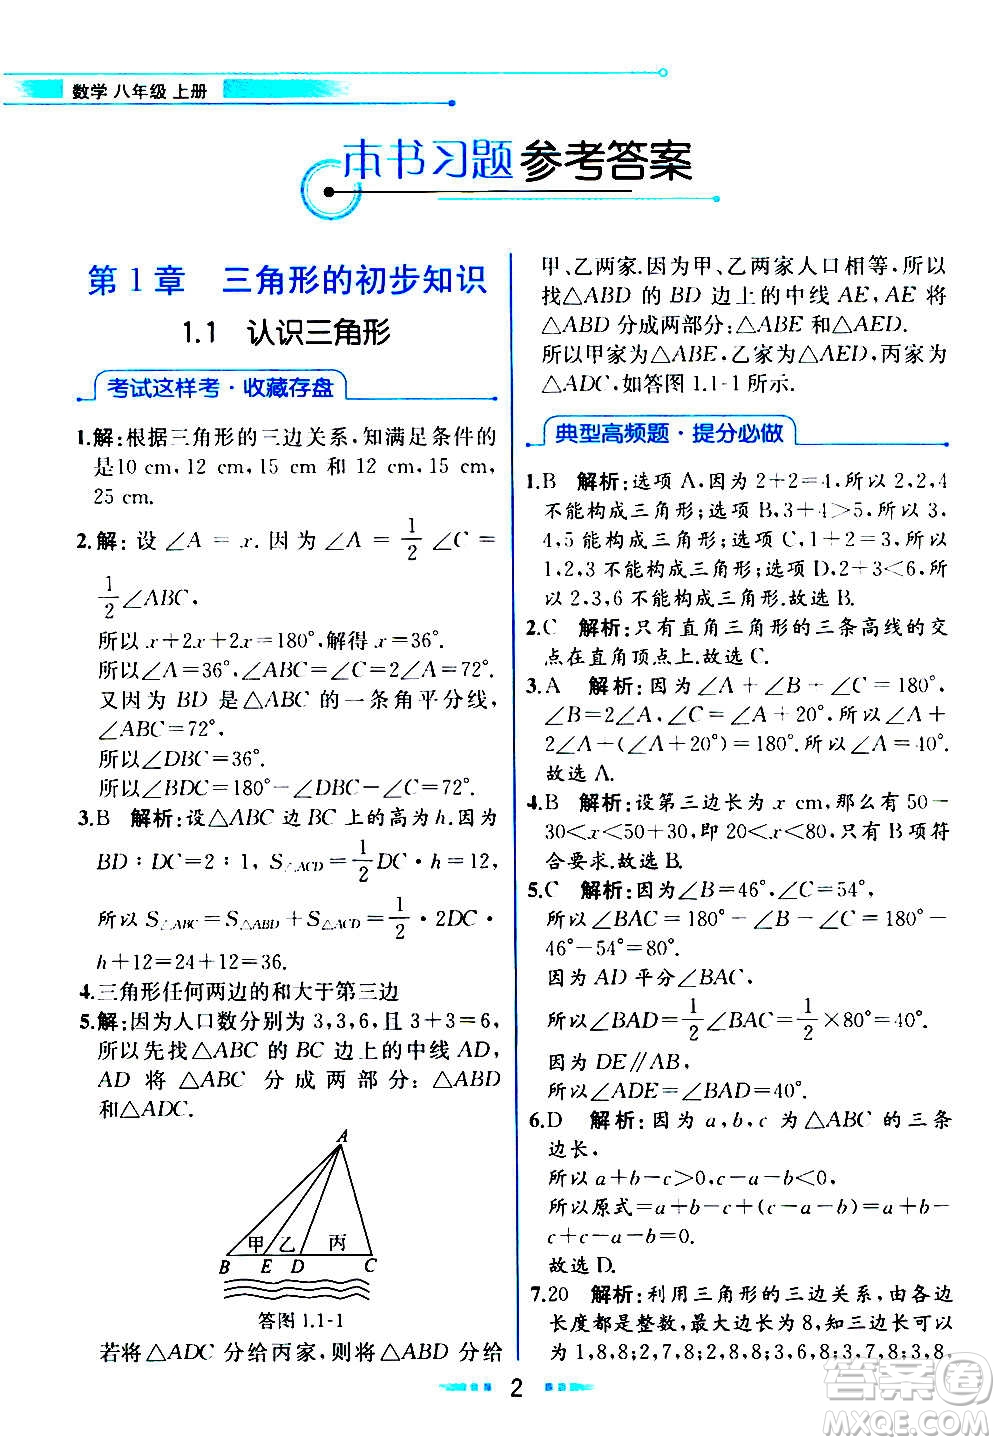 数学 八年级 上册
本书习题参考答案
第1章 三角形的初步知识
1.1 认识三角形
考试这样考·收藏存盘
1.解:根据三角形的三边关系,知满足条件的
是10 cm,12 cm,15 cm 和 12 cm,15 cm,
25 cm.
2.解:设∠A=x.因为∠A=1/2∠C=
1/2∠ABC,
所以x+2x+2x=180°,解得x=36°.
所以∠A=36°,∠ABC=∠C=2∠A=72°.
又因为BD是△ABC的一条角平分线,
∠ABC=72°,
所以∠DBC=36°.
所以∠BDC=180°-∠DBC-∠C=72°.
3.B 解析:设△ABC边BC上的高为h.因为
BD:DC=2:1,S△ACD=1/2DC·h=12,
所以S△ABC=S△ABD+S△ACD=1/2·2DC·
h+12=24+12=36.
4.三角形任何两边的和大于第三边
5.解:因为人口数分别为3,3,6,且3+3=6,
所以先找△ABC的BC边上的中线AD,
AD将△ABC分成两部分:△ABD
和△ADC.
A
甲 乙 丙
B E D C
答图 1.1-1
若将△ADC分给丙家,则将△ABD分给
甲、乙两家.因为甲、乙两家人口相等,所以
找△ABD的BD边上的中线AE,AE将
△ABD分成两部分:△ABE和△AED.
所以甲家为△ABE,乙家为△AED,丙家为
△ADC,如答图1.1-1所示.
典型高频题·提分必做
1.B 解析:选项A,因为2+2=4,所以2,2,4
不能构成三角形;选项B,3+4>5,所以3,
4,5能构成三角形;选项C,1+2=3,所以
1,2,3不能构成三角形;选项D,2+3<6,所
以2,3,6不能构成三角形.故选B.
2.C 解析:只有直角三角形的三条高线的交
点在直角顶点上.故选C.
3.A 解析:因为∠A+∠B+∠C=180°,
∠B=2∠A,∠A-∠C=20°,所以∠A+
2∠A+(∠A-20°)=180°.所以∠A=40°.
故选A.
4.B 解析:设第三边长为x cm,那么有50-
30<x<50+30,即20<x<80,只有B项符
合要求.故选B.
5.C 解析:因为∠B=46°,∠C=54°,
所以∠BAC=180°-∠B-∠C=180°-
46°-54°=80°.
因为AD平分∠BAC,
所以∠BAD=1/2∠BAC=1/2×80°=40°.
因为DE∥AB,
所以∠ADE=∠BAD=40°.
6.D 解析:因为a,b,c为△ABC的三条
边长,
所以a+b-c>0,c-a-b<0.
所以原式=a+b-c+(c-a-b)=a+b-
c+c-a-b=0.
故选D.
7.20 解析:利用三角形的三边关系,由各边
长度都是整数,最大边长为8,知三边长可以
为1,8,8;2,7,8;2,8,8;3,6,8;3,7,8;3,8,
2
答案圈
MXQE.COM